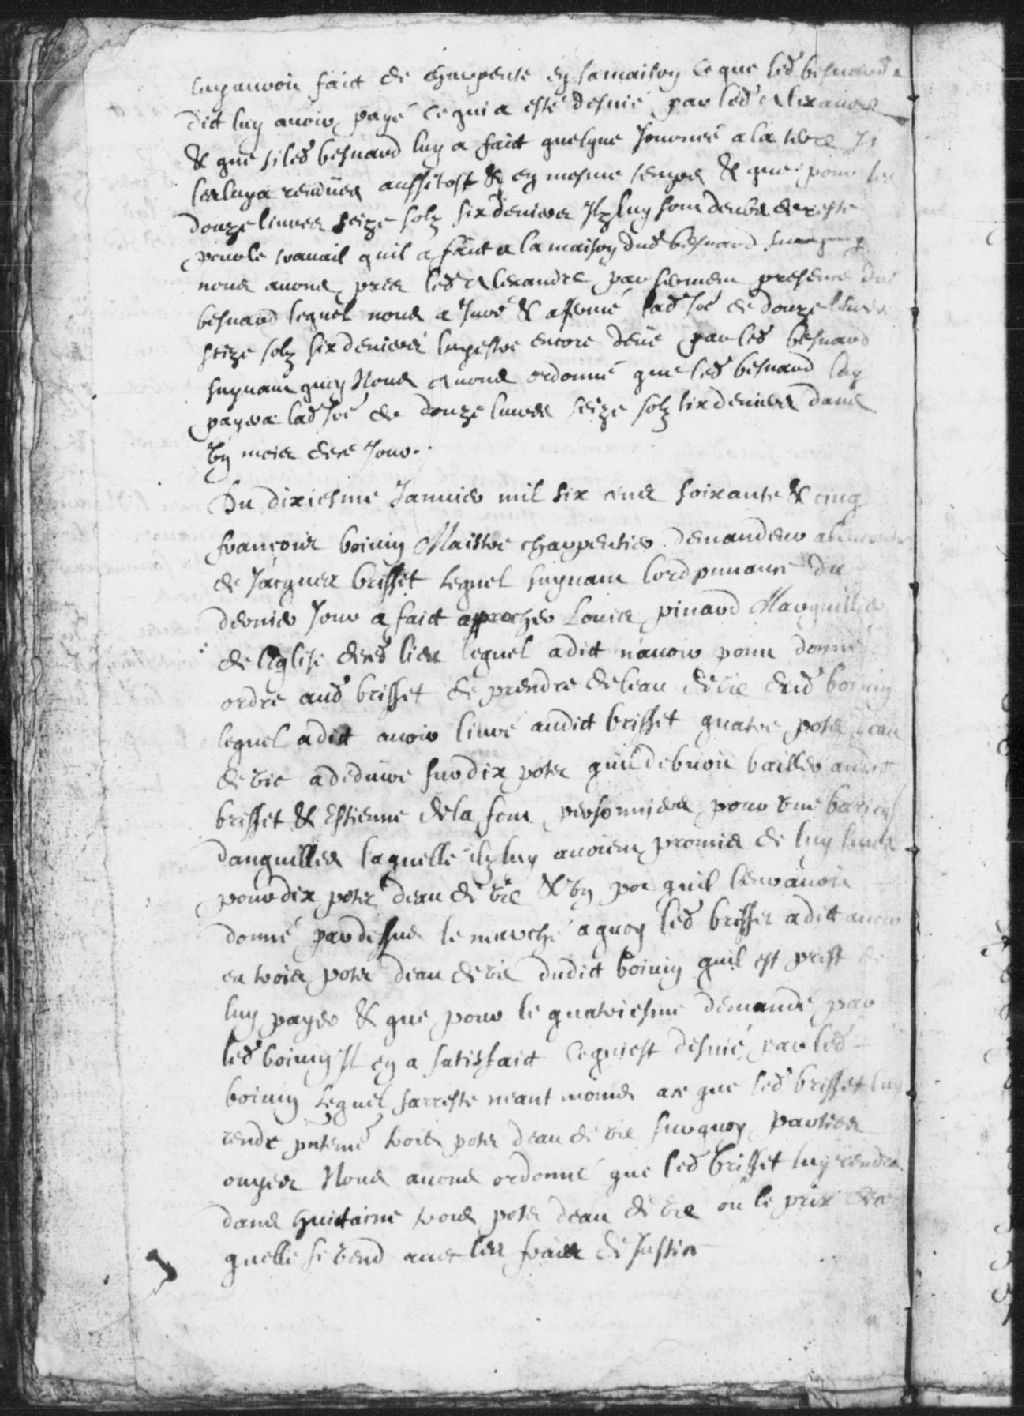 luy avoir faict de charpente en sa maison ce que led besnard
dict luy avoir payé ce qui a esté desnié par led Alexandre
& que si led besnard luy a faict quelque Journeé a la terre Il
les luy a rendües aussitost & en mesme temps & que pour les
douze liures seize solz six deniers Ilz luy sont deubz de reste
pour le trauail quil a faict a la maison dud besnard surquoy
nous auons pris led Alexandre par serment presence dud
besnard lequel nous a Juré & afermé lad soe de douze liures
seize solz six deniers luy estre encore deüe par led besnard
suyuant quoy Nous Auons ordonné que led besnard luy
payera lad soe de douze liures seize solz six deniers dans
Un mois de ce Jour.
Du dixiesme Januier mil six cens soixante & cinq
francois boiuin Maistre charpentier demandeur alencontre
de Jacques brisset lequel suyuant lordonnance du
dernier Jour a faict approcher Louis pinard Marguillier
de leglise de ced lieu lequel a dict nauoir point donné
ordre aud brisset de prendre de leau de vie dud boiuin
lequel a dict auoir liuré audict brisset quatre potz deau
de vie a deduire sur dix potz quil debuoit bailler audict
brisset & Estienne de la font personniers pour une barique
danguilles laquelle ilz luy auoient promis de luy liurer
pour dix potz deau de vie & un pot quil leur auoit
donné par dessus le marché a quoy led brisset a dict auoir
eu trois potz deau de vie dudict boiuin quil est prest de
luy payer & que pour le quatriesme demandé par
led boiuin Il en a satisfaict ce qui est desnié par led
boiuin lequel sarreste neant moins a ce que led brisset luy
rende pntemt trois potz deau de vie surquoy parties
ouyes Nous auons ordonné que led brisset luy rendra
dans huictaine trois potz deau de vie ou le prix de ce
quelle se vend auec les frais de Justice